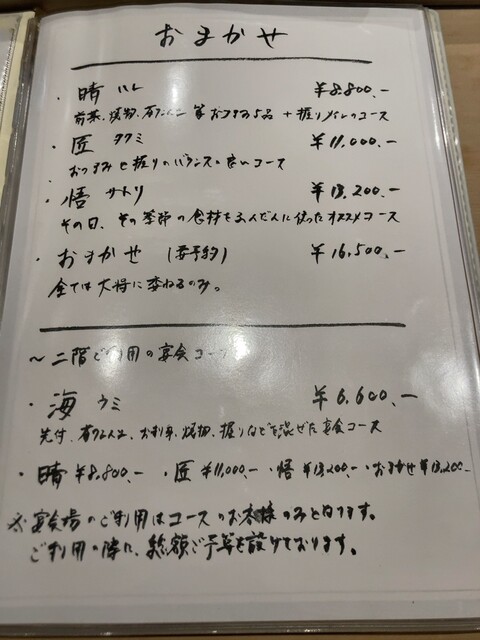 おまかせ
・晴 ハレ ¥8.800.-
前菜、焼物、茶わんむし 等 おつまみ5品 + 握りメインのコース
・匠 タクミ ¥11,000.-
おつまみと握りのバランスの良いコース
・悟 サトリ ¥13,200.-
その日、その季節の食材をふんだんに使ったオススメコース
・おまかせ (要予約) ¥16,500.-
全ては大将に委ねるのみ。
〜二階ご利用の宴会コース
・海 ウミ ¥6,600.-
先付、茶わんむし、お刺身、焼物、握りなどを混ぜた宴会コース
・晴 ¥8,800.- ・匠 ¥11,000.- ・悟 ¥13,200.- ・おまかせ ¥13,200-
※宴会場のご利用はコースのお客様のみと
ご利用の際に、総額ご予算を設けております。